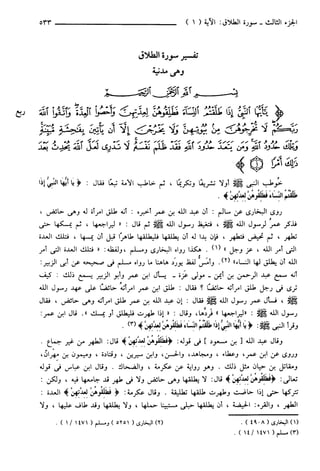 الجزء الثالث ـ سورة الطلاق : الآية ( ١ )
٥٣٣
تفسير سورة الطلاق
وهى مدنية
بسم الله الرحمن الرحيم
﴿ يَا أَيُّهَا النَّبِيُّ إِذَا طَلَّقْتُمُ النِّسَاءَ فَطَلِّقُوهُنَّ لِعِدَّتِهِنَّ وَأَحْصُوا الْعِدَّةَ وَاتَّقُوا اللَّهَ
ربع
رَبَّكُمْ لَا تُخْرِجُوهُنَّ مِنْ بُيُوتِهِنَّ وَلَا يَخْرُجْنَ إِلَّا أَنْ يَأْتِينَ بِفَاحِشَةٍ مُبَيِّنَةٍ
وَتِلْكَ حُدُودُ اللَّهِ وَمَنْ يَتَعَدَّ حُدُودَ اللَّهِ فَقَدْ ظَلَمَ نَفْسَهُ لَا تَدْرِي لَعَلَّ اللَّهَ يُحْدِثُ بَعْدَ
ذَلِكَ أَمْرًا ﴾
خُوطب النبى ﷺ أولا تشريفًا وتكريمًا ، ثم خاطب الأمة تبعًا فقال : ﴿ يَا أَيُّهَا النَّبِيُّ إِذَا
طَلَّقْتُمُ النِّسَاءَ فَطَلِّقُوهُنَّ لِعِدَّتِهِنَّ ﴾ .
روى البخارى عن سالم : أن عبد الله بن عمر أخبره : أنه طلق امرأة له وهى حائض ،
فذكر عمرُ لرسول الله ﷺ ، فتغيظ رسول الله ﷺ ثم قال : « ليراجعها ، ثم يمسكها حتى
تطهر ، ثم تحيض فتطهر ، فإن بدا له أن يطلقها فليطلقها طاهرًا قبل أن يمسها ، فتلك العدة
التى أمر الله ، عز وجل » (١) . هكذا رواه البخارى ومسلم ، ولفظه : « فتلك العدة التى أمر
الله أن يطلق لها النساء» (٢). وأمسُّ لفظ يورَد هاهنا ما رواه مسلم فى صحيحه عن أبى الزبير:
أنه سمع عبد الرحمن بن أيمن ـ مولى عَزة ـ يسأل ابن عمر وأبو الزبير يسمع ذلك : كيف
ترى فى رجل طلق امرأته حائضًا ؟ فقال : طلق ابن عمر امرأتُه حائضًا على عهد رسول الله
ﷺ ، فسأل عمر رسول الله ﷺ فقال : إن عبد الله بن عمر طلق امرأته وهى حائض ، فقال
رسول الله ﷺ : «ليراجعها » فَردَّها، وقال : « إذا طهرت فليطلق أو يمسك ». قال ابن عمر:
وقرأ النبى ﷺ : ﴿ يَا أَيُّهَا النَّبِيُّ إِذَا طَلَّقْتُمُ النِّسَاءَ فَطَلِّقُوهُنَّ لِعِدَّتِهِنَّ ﴾ (٣) .
وقال عبد الله [ بن مسعود ] فى قوله: ﴿فَطَلِّقُوهُنَّ لِعِدَّتِهِنَّ﴾ قال: الطهر من غير جماع .
وروى عن ابن عمر، وعطاء ، ومجاهد، والحسن، وابن سيرين ، وقتادة ، وميمون بن مِهْران،
ومقاتل بن حيان مثل ذلك . وهو رواية عن عكرمة ، والضحاك . وقال ابن عباس فى قوله
تعالى: ﴿فَطَلِّقُوهُنَّ لِعِدَّتِهِنَّ﴾ قال: لا يطلقها وهى حائض ولا فى طهر قد جامعها فيه ، ولكن :
تتركها حتى إذا حاضت وطهرت طلقها تطليقة . وقال عكرمة: ﴿فَطَلِّقُوهُنَّ لِعِدَّتِهِنَّ﴾ العدة :
الطهر ، والقرء: الحيضة ، أن يطلقها حبلى مستبينا حملها ، ولا يطلقها وقد طاف عليها ، ولا
(١) البخارى ( ٤٩٠٨ ) .
(٢) البخارى ( ٥٢٥١ ) ومسلم ( ١٤٧١ / ١ ) .
(٣) مسلم ( ١٤٧١ / ١٤ ) .